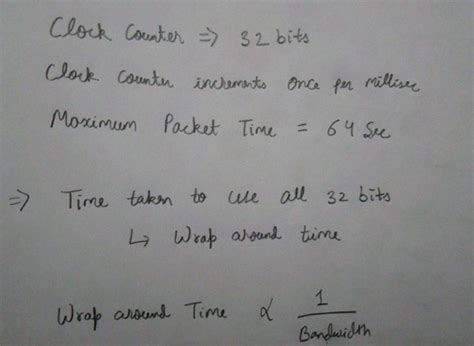 Clock Counter ⇒ 32 bits
Clock Counter increments once per millisec
Maximum Packet Time = 64 Sec
⇒ Time taken to use all 32 bits
↳ Wrap around time
Wrap around Time ∝ 1 / Bandwidth